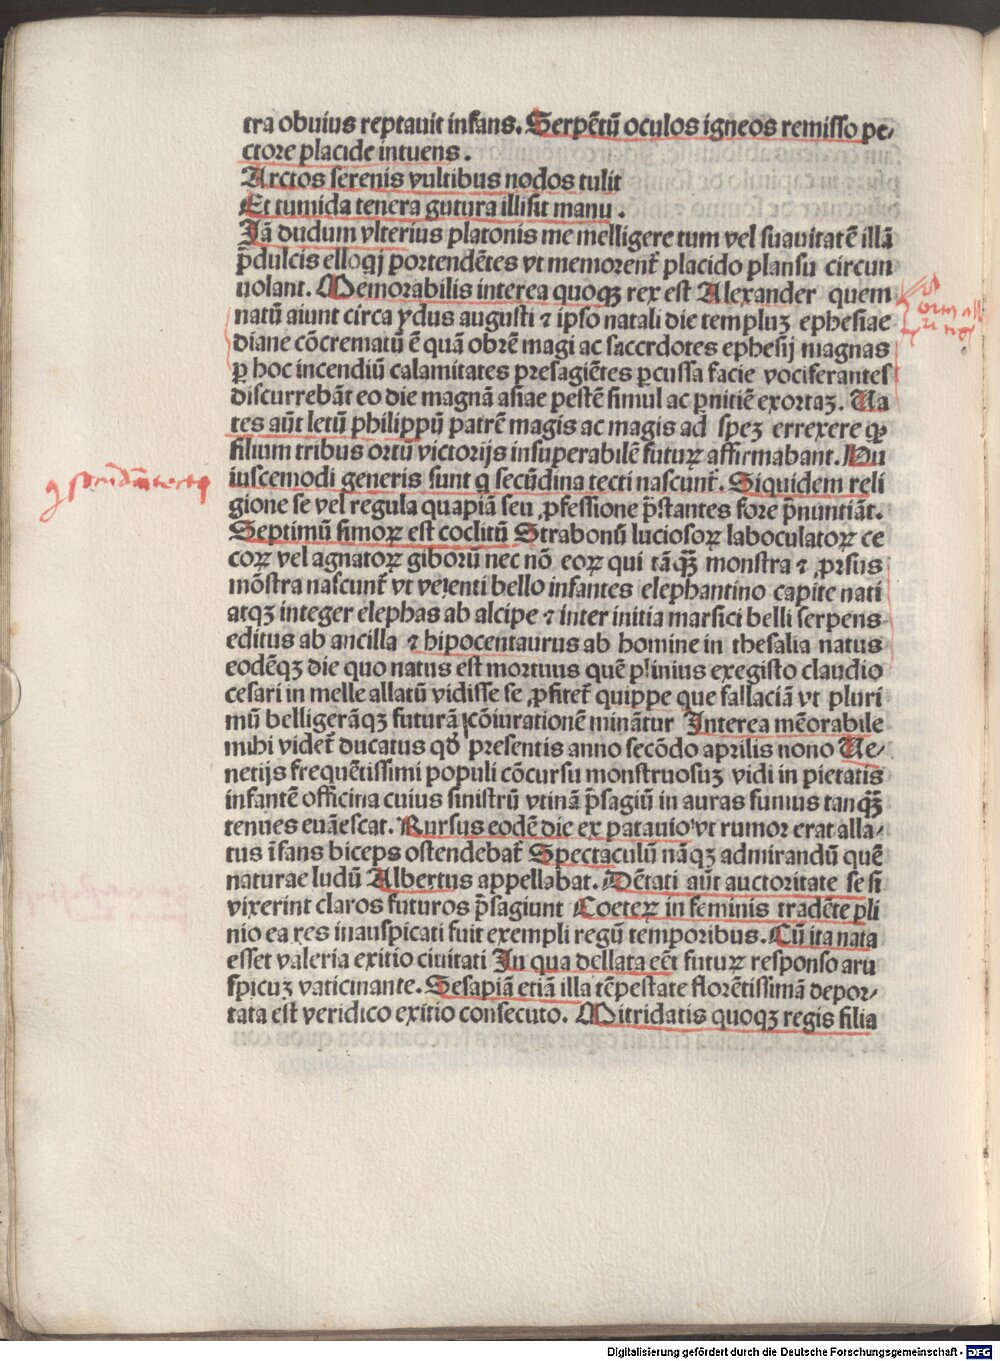 tra obuius reptauit infans. Serpētū oculos igneos remisso pe/
ctore placide intuens.
Arctos serenis vultibus nodos tulit
Et tumida tenera gutura illisit manu.
Jā dudum vlterius platonis me melligere tum vel suauitatē illā
p̄dulcis elloqij portendētes vt memorent᷑ placido plansu circun
uolant. Memorabilis interea quoqꝫ rex est Alexander quem
natū aiunt circa ydus augusti ⁊ ipso natali die templuꝫ ephesiae
diane cōcrematū ē quā obrē magi ac saccrdotes ephesij magnas
ꝑ hoc incendiū calamitates presagiētes ꝑcussa facie vociferantes
discurrebāt eo die magnā asiae pestē simul ac ꝑnitiē exortaꝫ. Ua
tes aūt letū philippū patrē magis ac magis ad speꝫ errexere qꝙ
filium tribus ortū victorijs insuperabilē futuꝝ affirmabant. Hu
iuscemodi generis sunt q secūdina tecti nascunt᷑. Siquidem reli
gione se vel regula quapiā seu ꝓfessione p̄stantes fore p̄nuntiāt.
Septimū simoꝝ est coclitū Strabonū luciosoꝝ laboculatoꝝ ce
coꝝ vel agnatoꝝ giborū nec nō eoꝝ qui tāqꝫ monstra ⁊ ꝓrsus
mōstra nascunt᷑ vt veienti bello infantes elephantino capite nati
atqꝫ integer elephas ab alcipe ⁊ inter initia marsici belli serpens
editus ab ancilla ⁊ hipocentaurus ab homine in thesalia natus
eodēqꝫ die quo natus est mortuus quē plinius exegisto claudio
cesari in melle allatū vidisse se ꝓfitet᷑ quippe que fallaciā vt pluri
mū belligerāqꝫ futurā cōiurationē minātur Interea mēorabile
mihi videt᷑ ducatus qđ presentis anno secōdo aprilis nono Ue/
netijs frequētissimi populi cōcursu monstruosuꝫ vidi in pietatis
infantē officina cuius sinistrū vtinā p̄sagiū in auras fumus tanqꝫ
tenues euāescat. Rursus eodē die ex patauio vt rumor erat alla/
tus īfans biceps ostendebat᷑ Spectaculū nāqꝫ admirandū quē
naturae ludū Albertus appellabat. Dētati aūt auctoritate se si
vixerint claros futuros p̄sagiunt Coeteꝝ in feminis tradēte pli
nio ea res inauspicati fuit exempli regū temporibus. Cū ita nata
esset valeria exitio ciuitati In qua dellata eēt futuꝝ responso aru
spicuꝫ vaticinante. Sesapiā etiā illa tēpestate florētissimā depor/
tata est veridico exitio consecuto. Mitridatis quoqꝫ regis filia
Digitalisierung gefördert durch die Deutsche Forschungsgemeinschaft - DFG